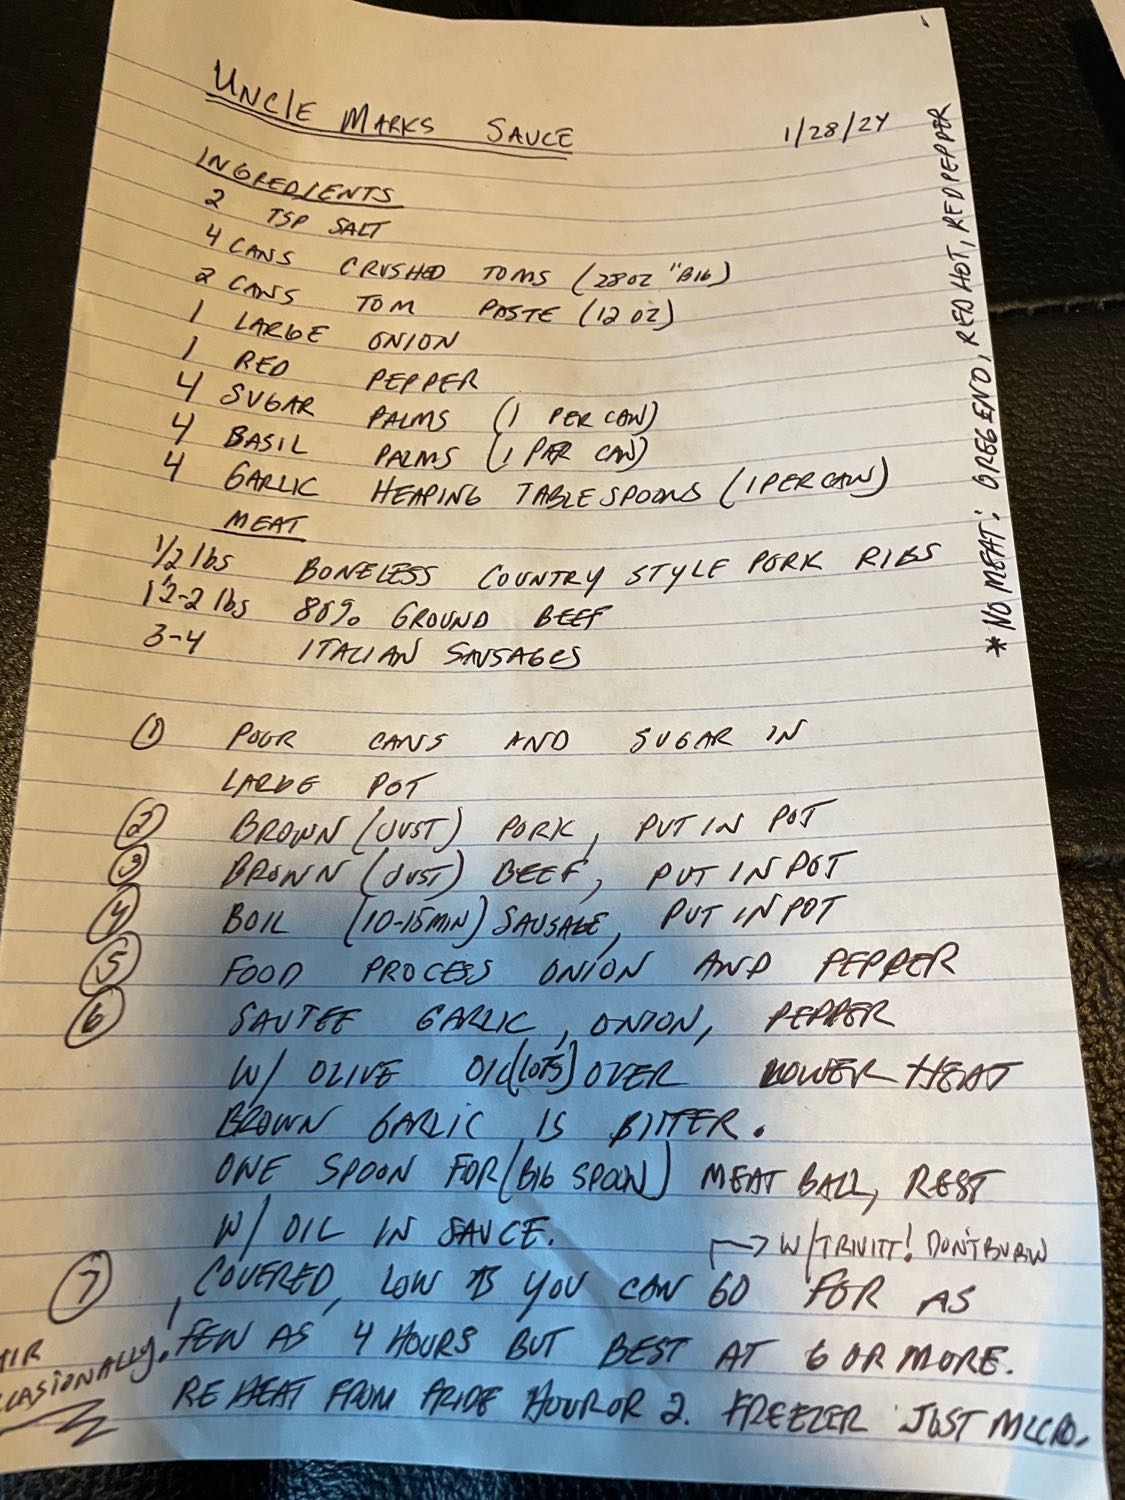 UNCLE MARKS SAUCE 1/28/24
INGREDIENTS
2 TSP SALT
4 CANS CRUSHED TOMS (28OZ "BIG)
2 CANS TOM PASTE (12 OZ)
1 LARGE ONION
1 RED PEPPER
4 SUGAR PALMS (1 PER CAN)
4 BASIL PALMS (1 PER CAN)
4 GARLIC HEAPING TABLESPOONS (1 PER CAN)
MEAT
1/2 lbs BONELESS COUNTRY STYLE PORK RIBS
1 1/2-2 lbs 80% GROUND BEEF
3-4 ITALIAN SAUSAGES
① POUR CANS AND SUGAR IN
LARGE POT
② BROWN (JUST) PORK, PUT IN POT
③ BROWN (JUST) BEEF, PUT IN POT
④ BOIL (10-15MIN) SAUSAGE, PUT IN POT
⑤ FOOD PROCESS ONION AND PEPPER
⑥ SAUTEE GARLIC, ONION, PEPPER
W/ OLIVE OIL (LOTS) OVER LOWER HEAT
BROWN GARLIC IS BITTER.
ONE SPOON FOR (BIG SPOON) MEAT BALL, REST
W/ OIL IN SAUCE.
→ W/TRIVITT! DON'T BURN
⑦ COVERED, LOW AS YOU CAN GO FOR AS
FEW AS 4 HOURS BUT BEST AT 6 OR MORE.
REHEAT FROM FRIDE HOUR OR 2. FREEZER JUST MICRO.
TIR
CCASIONALLY!
* NO MEAT: GREG END, RED HOT, RED PEPPER